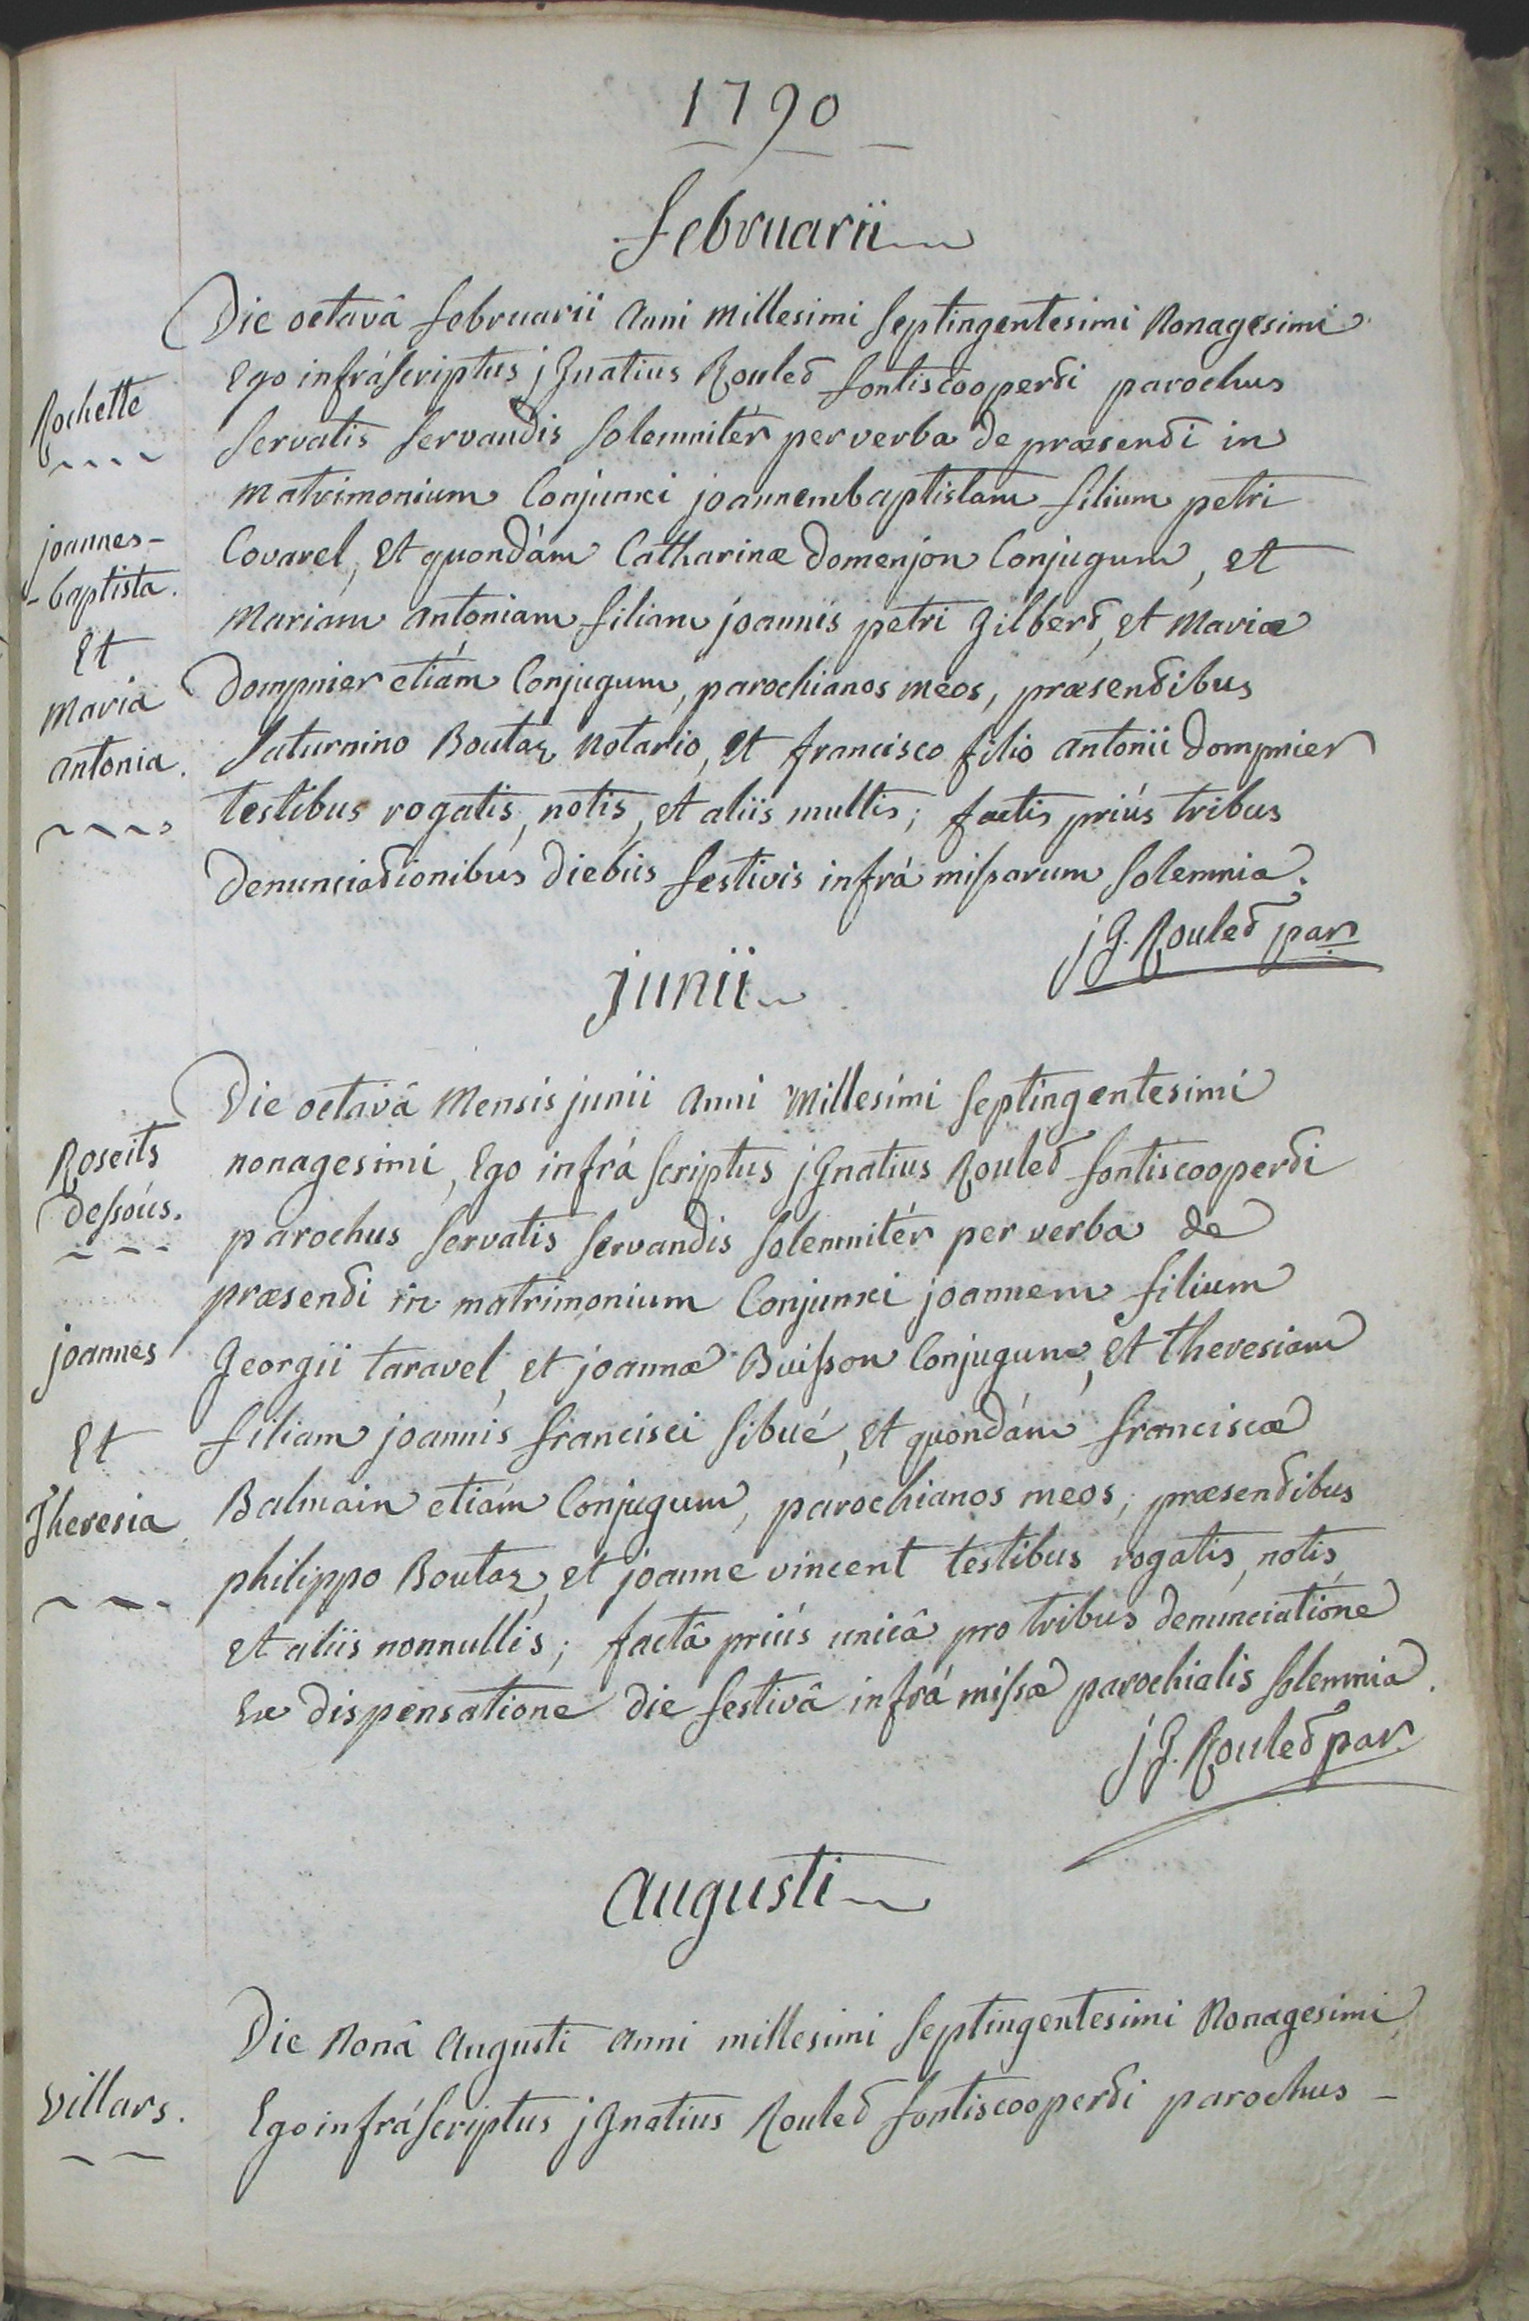 1790
februarii
Die octavâ februarii anni millesimi septingentesimi nonagesimi
Ego infráscriptus jgnatius Roulet fontiscooperti parochus
Rochette
servatis servandis solemnitér per verba de præsenti in
matrimonium conjunxi joannembaptistam filium petri
joannes-
Covarel, et quondám Catharinæ Domenjon conjugum, et
-baptista.
mariam antoniam filiam joannis petri Gilbert, et mariæ
Et
Dompnier etiám conjugum, parochianos meos, præsentibus
maria
saturnino Boutaz notario, et francisco filio antonii dompnier
antonia.
testibus rogatis, notis, et aliis multis; factis priús tribus
denunciationibus diebus festivis infrá missarum solemnia.
j G. Roulet par
junii
Die octavâ mensis junii anni millesimi septingentesimi
Roseits
nonagesimi, Ego infrá scriptus jgnatius Roulet fontiscooperti
dessous.
parochus servatis servandis solemnitér per verba de
præsenti in matrimonium conjunxi joannem filium
joannes
Georgii taravel, et joannæ Buisson conjugum, et theresiam
Et
filiam joannis francisci sibué, et quondám franciscæ
Theresia
Balmain etiám conjugum, parochianos meos; præsentibus
philippo Boutaz, et joanne vincent testibus rogatis, notis,
et aliis nonnullis; factâ priús unicâ pro tribus denunciatione
Ex dispensatione die festivâ infrá missæ parochialis solemnia.
j G. Roulet par
augusti
Die nonâ augusti anni millesimi septingentesimi nonagesimi,
villars.
Ego infráscriptus jgnatius Roulet fontiscooperti parochus -